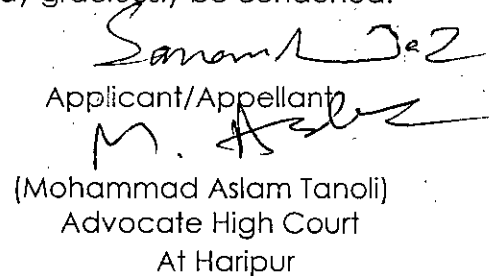 graciously be condoned.
Applicant/Appellant
M. Aslam
(Mohammad Aslam Tanoli)
Advocate High Court
At Haripur